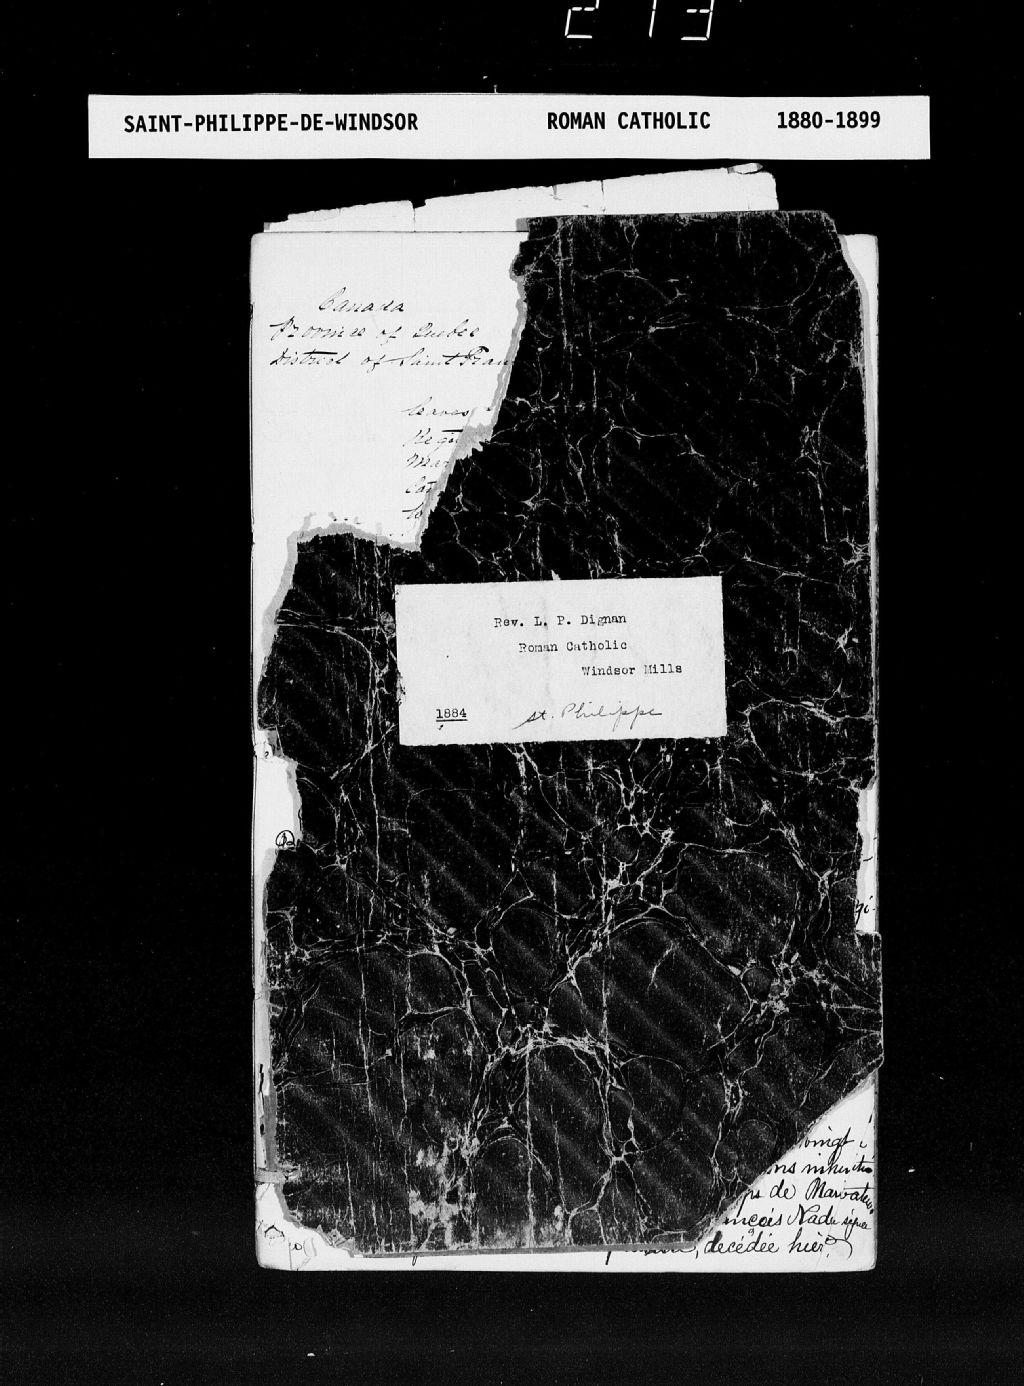 2 13
SAINT-PHILIPPE-DE-WINDSOR ROMAN CATHOLIC 1880-1899
Canada
Province of Quebec
District of Saint Fran
leaves
Regi
Mar
Cat
to
Rev. L. P. Dignan
Roman Catholic
Windsor Mills
1884 St. Philippe
gi-
vingt
de
décédée hier